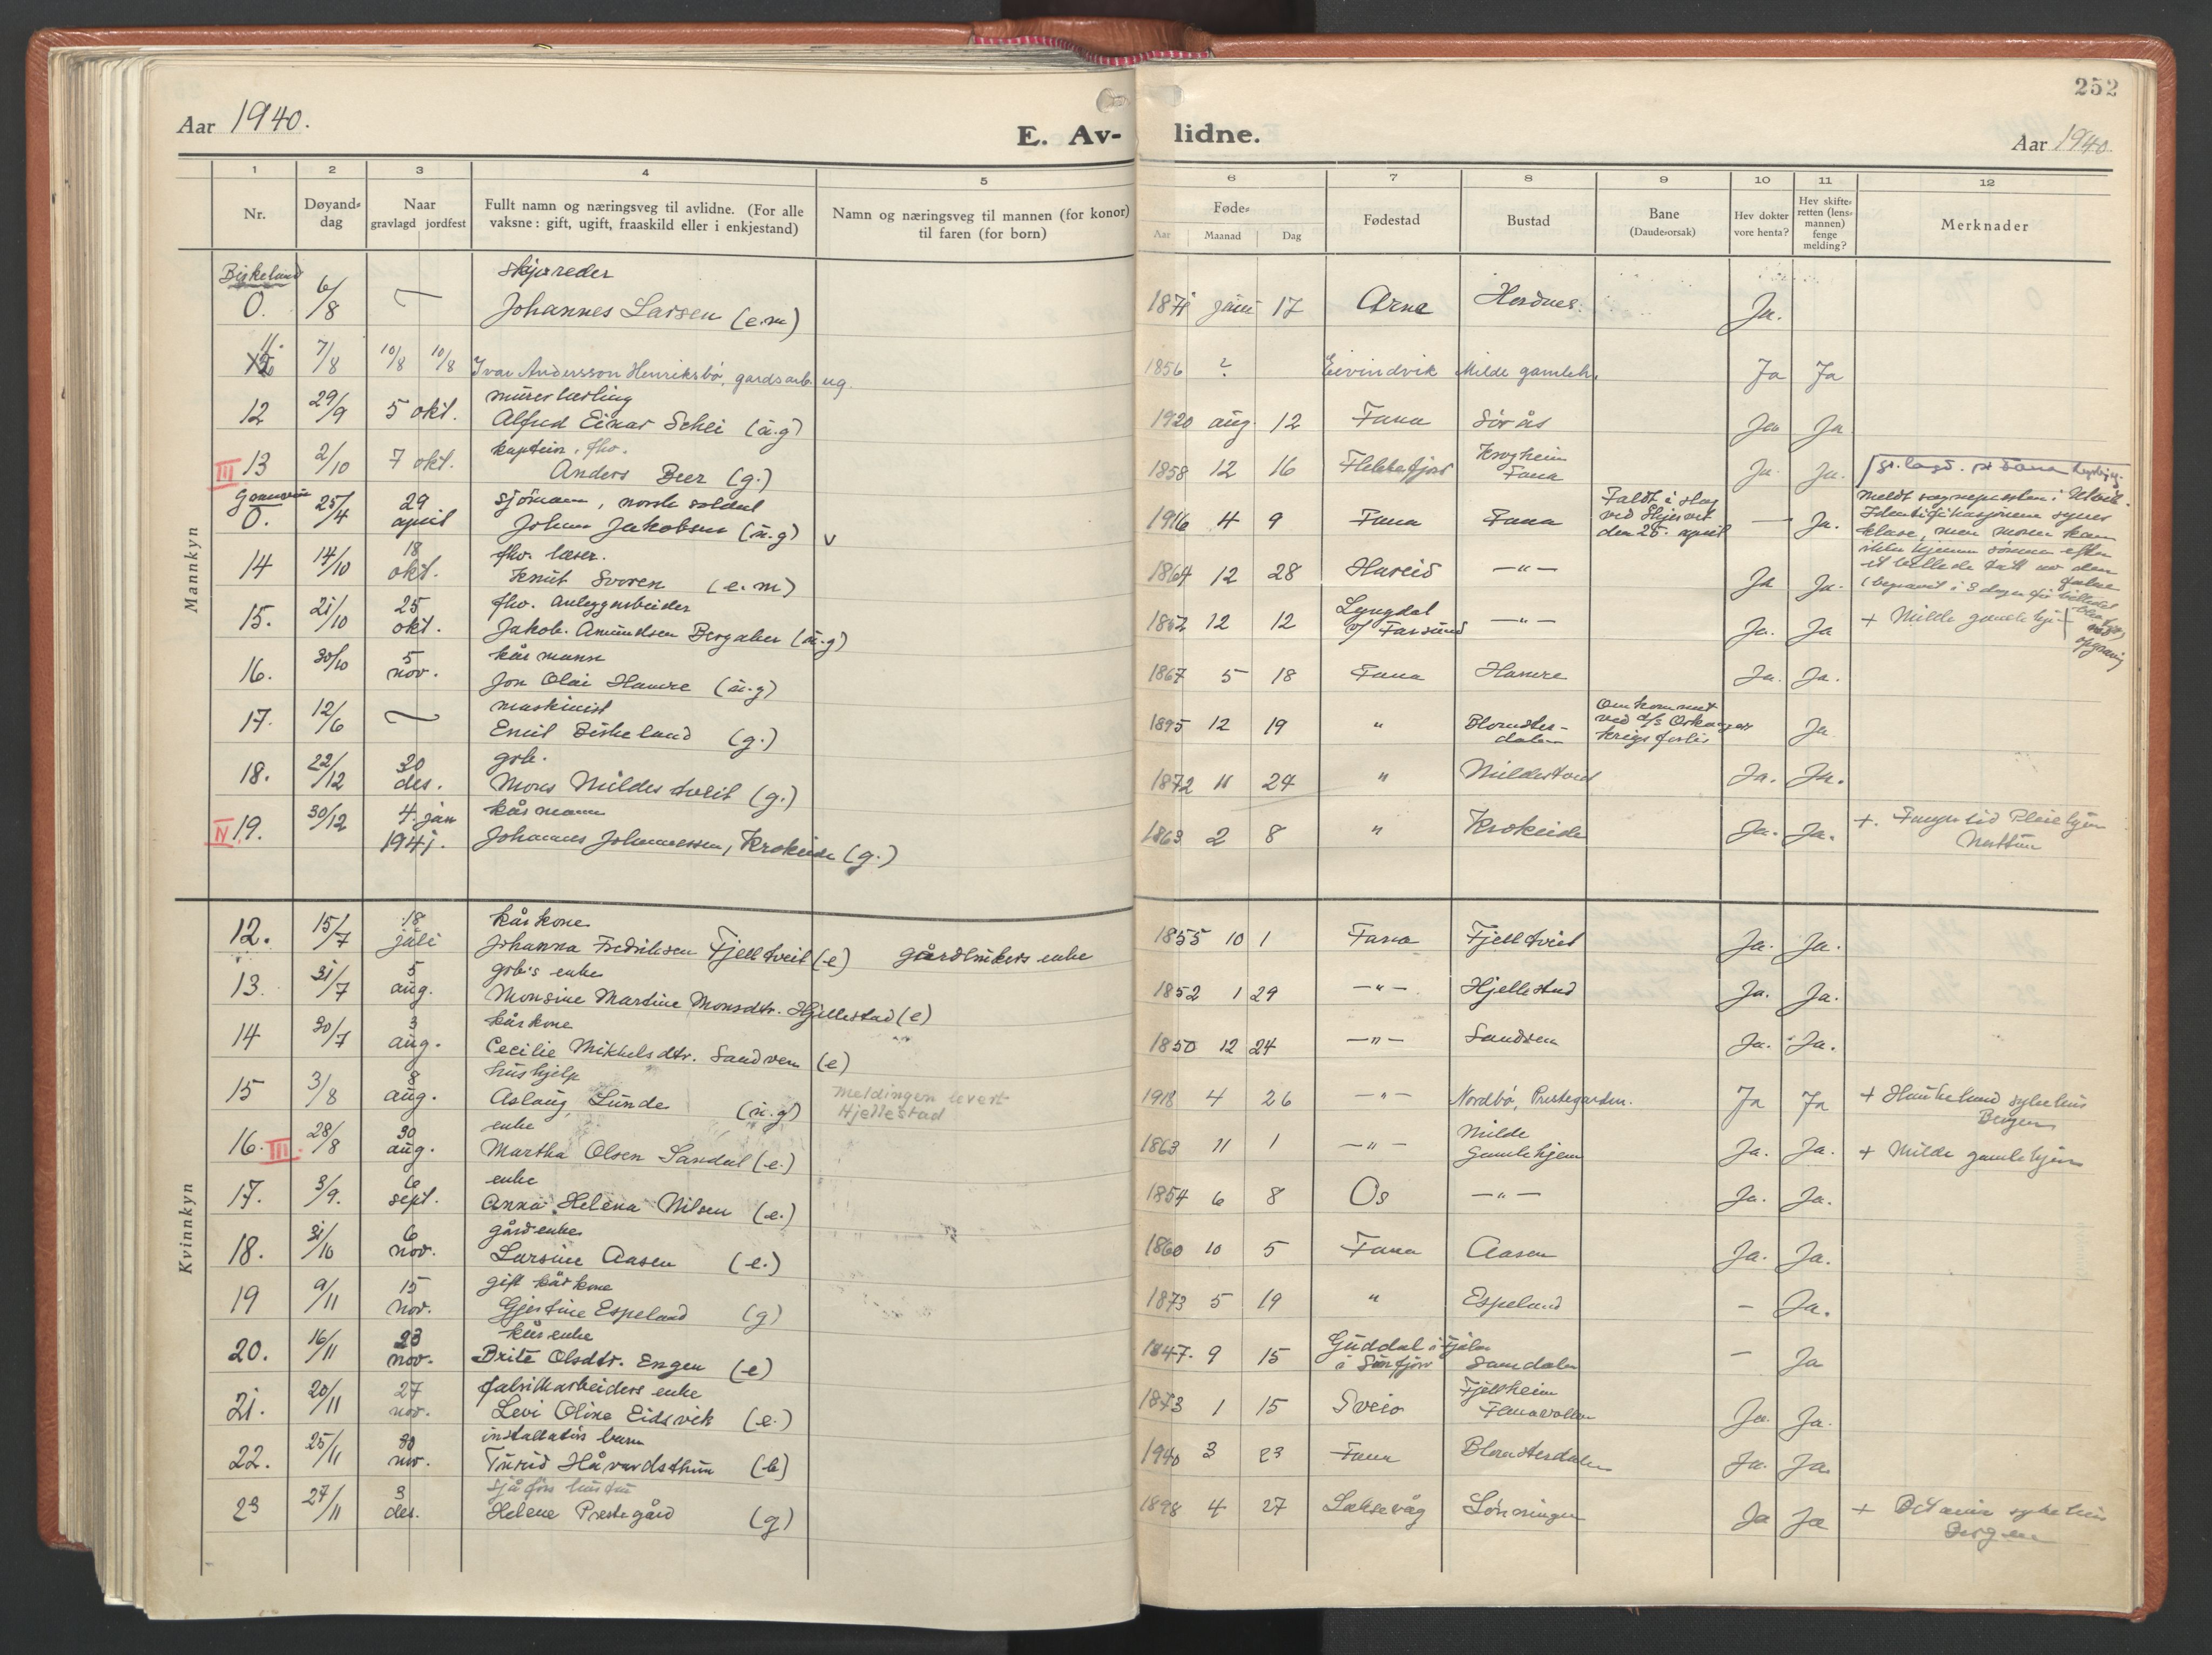 252
Aar 1940.
E. Av- lidne.
Aar 1940.
1 2 3 4 5 6 7 8 9 10 11 12
Nr.
Døyand-
dag
Naar
gravlagd jordfest
Fullt namn og næringsveg til avlidne. (For alle
vaksne: gift, ugift, fraaskild eller i enkjestand)
Namn og næringsveg til mannen (for konor)
til faren (for born)
Føde-
Aar Maanad Dag
Fødestad
Bustad
Bane
(Daudsorsak)
Hev dokter
vore henta?
Hev skifte-
retten (lens-
mannen)
fenge
melding?
Merknader
Mannkyn
Birkeland skipsreder
0. 6/8 — Johannes Larsen (e.m) 1871 juni 17 Arne Hordnes. Ja.
11. 7/8 10/8 10/8 Ivar Andersson Henriksbø, gardsarb. ug. 1856 ? Eivindvik Milde gamleh. Ja Ja
murerlærling
12 29/9 5 okt. Alfred Einar Schei (u.g) 1920 aug. 12 Fana Sørås Ja Ja
kaptein, fhv. Krogheim
III 13 2/10 7 okt. Anders Beer (g.) 1858 12 16 Flekkefjord Fana Ja. Ja. gr.lagd. på Fana
sjømann, norsk soldat
0. 25/4 29 april Johan Jakobsen (u.g) v 1916 4 9 Fana Fana Faldt i slag
ved
den 25. april — Ja.
Meldt sognepresten i
Identifikasjonen synes
klare, men moren kan
ikke kjenne sønnen efter
et billede tatt av den falne
(begravet i 3 dager før billedet
blev tatt ved
opgraving
fhv. læser.
14 14/10 18 okt. Knut Svoren (e.m) 1864 12 28 Hareid —"— Ja Ja.
fhv. anleggsarbeider Lyngdal
15. 21/10 25 okt. Jakob Amundsen Bergaker (u.g) 1862 12 12 v/ Farsund —"— Ja. Ja + Milde gamlehj.
kårmann
16. 30/10 5 nov. Jon Olai Hamre (u.g) 1867 5 18 Fana Hamre Ja. Ja.
maskinist
17. 12/6 — Emil Birkeland (g.) 1895 12 19 " Blomster-
dalen Omkommet
ved d/s Orkanger
krigsforlis Ja
grb.
18. 22/12 30 des. Mons Mildestveit (g.) 1872 11 24 " Mildestveit Ja. Ja.
kårmann
IV 19. 30/12 4. jan 1941. Johannes Johannessen, Krokeide (g.) 1863 2 8 " Krokeide Ja. Ja. + Fanger Pleiehjem
Nesttun
Kvinnkyn
kårkone
12. 15/7 18 juli Johanna Fredriksen Fjelltveit (e) gårdbrukers enke 1855 10 1 Fana Fjelltveit Ja. Ja.
grb's enke
13. 31/7 5 aug. Monsine Martine Monsdtr. Hjellestad (e) 1852 1 29 —"— Hjellestad Ja. Ja.
kårkone
14 30/7 3 aug. Cecilie Mikkelsdtr. Sandven (e) 1850 12 24 —"— Sandven Ja. Ja.
hushjelp
15 3/8 8 aug. Aslaug Lunde (u.g) Meldingen levert
Hjellestad 1918 4 26 —"— Nordbø, Prestegarden. Ja Ja + Haukeland sykehus
Bergen
enke Milde
16. III 28/8 30 aug. Martha Olsen Sandal (e.) 1863 11 1 —"— Gamlehjem Ja. Ja. + Milde gamlehjem
enke
17. 3/9. 6 sept. Anna Helena Nilsen (e.) 1854 6 8 Os —"— Ja. Ja.
gårdenke
18. 31/10 6 nov. Larsine Aasen (e.) 1860 10 5 Fana Aasen Ja. Ja.
gift kårkone
19 9/11 15 nov. Gjertine Espeland (g) 1873 5 19 " Espeland - Ja.
kårenke Guddal i Fjaler
20. 16/11 23 nov. Brite Olsdtr. Engen (e) 1847. 9 15 i Sunnfjord Samdalen - Ja
fabrikkarbeiders enke Fjellheim
21. 20/11 27 nov. Levi Oline Eidsvik (e.) 1873 1 15 Sveio Fanavollen Ja. Ja.
installatørs barn
22. 25/11 30 nov. Turid Håvardsthun (b) 1940 3 23 Fana Blomsterdalen Ja. Ja
sjåførs hustru
23 27/11 3 des. Helene Prestegård (g) 1898 4 27 Laksevåg Lønningen Ja Ja + Betanien sykehus
Bergen